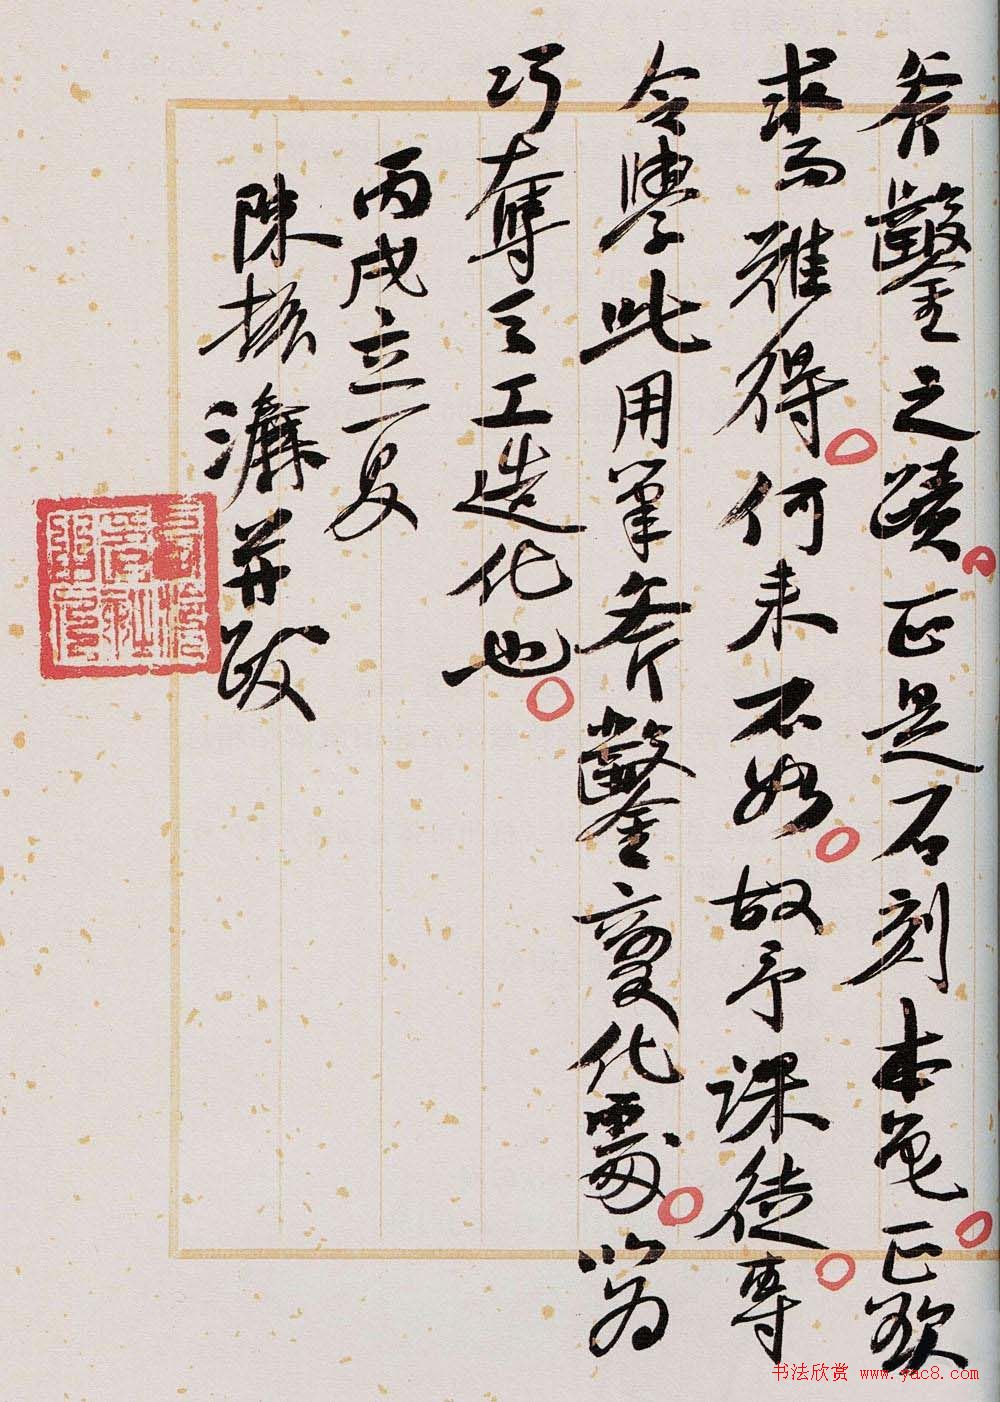 斧鑿之蹟正是石刻本色正欲
求而難得何来不好故予課徒專
令學此用筆斧鑿變化處以為
巧奪天工造化也
丙戌立夏
陳振濂并跋
书法欣赏 www.yac8.com